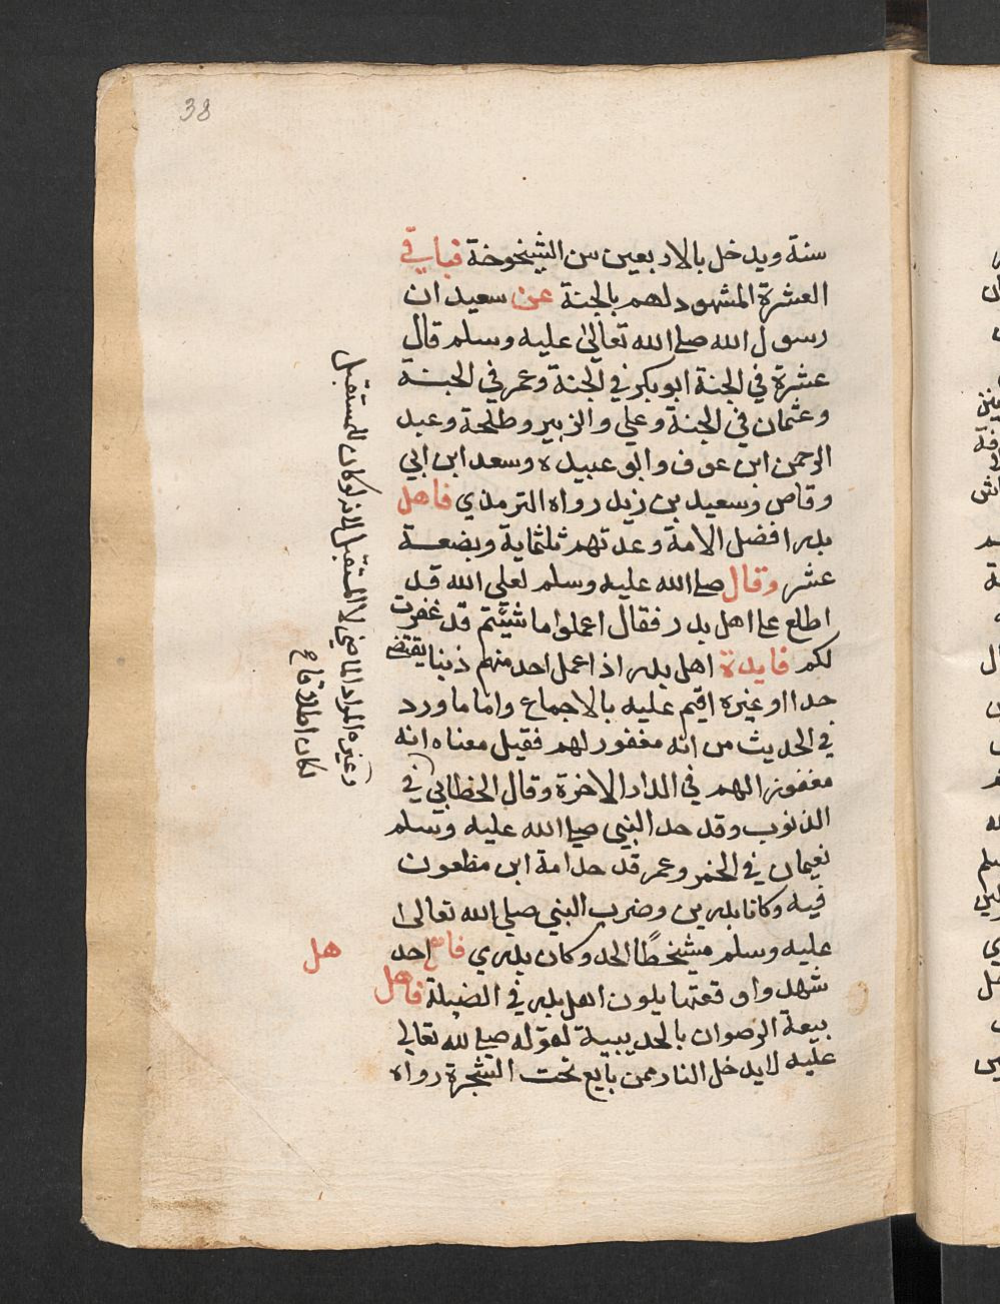 38
سنة ويدخل بالاربعين سن الشيخوخة فباقي
العشرة المشهود لهم بالجنة عن سعيد ان
رسول الله صلى الله تعالى عليه وسلم قال
عشرة في الجنة ابو بكر في الجنة وعمر في الجنة
وعثمان في الجنة وعلي والزبير وطلحة وعبد
الرحمن ابن عوف وابو عبيدة وسعد ابن ابي
وقاص وسعيد بن زيد رواه الترمذي فاهل
بدر افضل الامة وعدتهم ثلثماية وبضعة
عشر وقال صلى الله عليه وسلم لعل الله قد
اطلع على اهل بدر فقال اعملوا ما شيئتم قد غفرت
لكم فايدة اهل بدر اذا عمل احد منهم ذنبا يقتضي
حدا او غيره اقيم عليه بالاجماع واما ما ورد
في الحديث من انه مغفور لهم فقيل معناه انه
مغفور لهم في الدار الاخرة وقال الخطابي في
الذنوب وقد حد النبي صلى الله عليه وسلم
نعيمان في الخمر وعمر قد حدامة ابن مظعون
فيه وكانا بدرين وضرب النبي صلى الله تعالى
عليه وسلم مشخطًا الحد وكان بدري فاهل احد
هل
شهدوا وقعتها يلون اهل بدر في الفضيلة فاهل
بيعة الرضوان بالحديبية لقوله صلى لله تعالى
عليه لا يدخل النار ممن بايع تحت الشجرة رواه
وغيره المراد الماضي لا المستقبل لانه لو كان للمستقبل
لكان اطلاقا ع